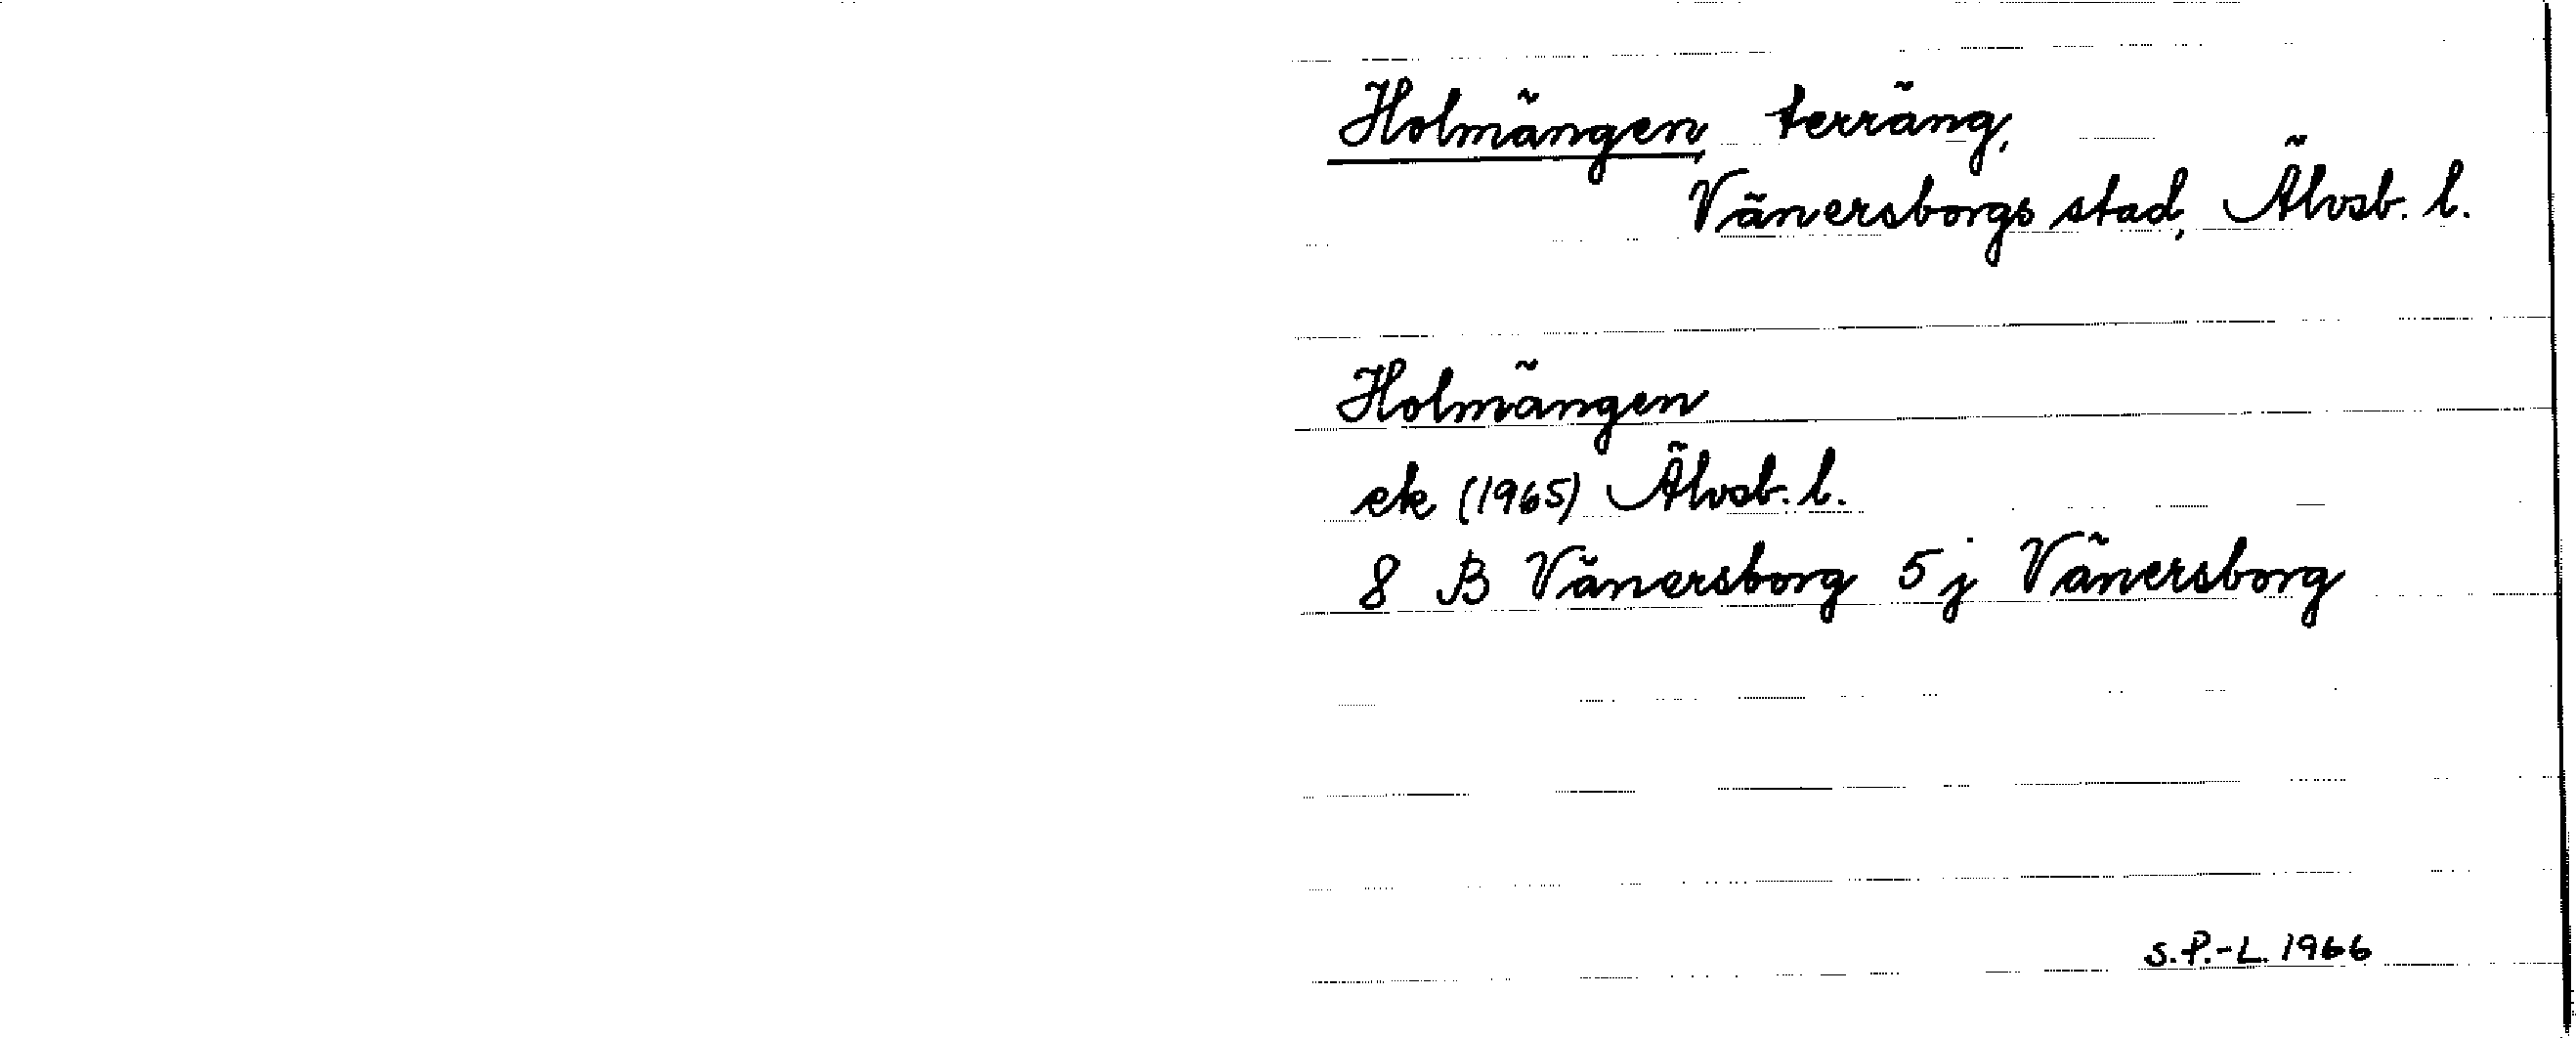 Holmängen, terräng,
Vänersborgs stad, Älvsb. l.
Holmängen
ek (1965) Älvsb. l.
8 B Vänersborg 5 j Vänersborg
S.P.-L. 1966